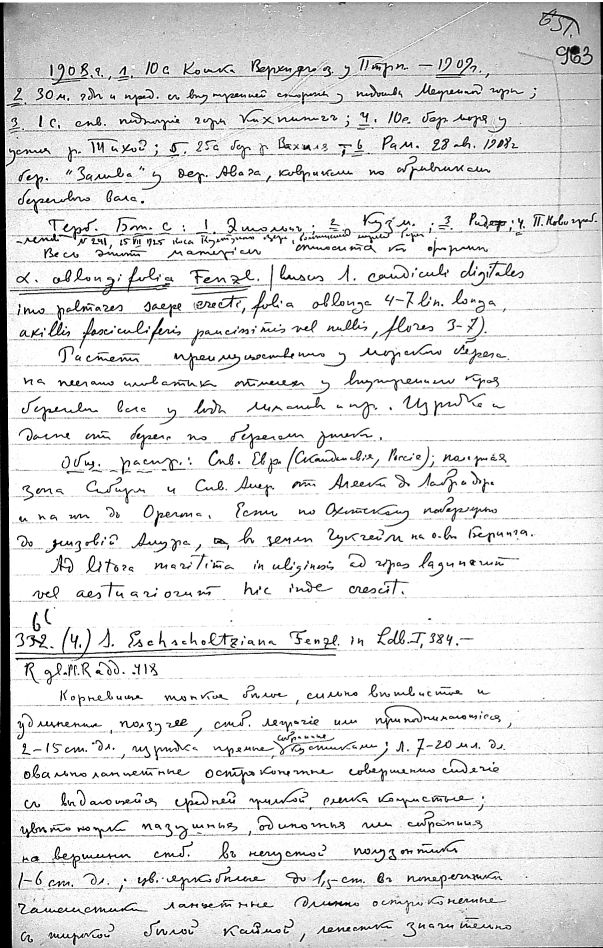 651.
963
1908 г., 1. 10 с Кошка у Птрп — 1909 г.,
2 30 м. и пред. съ внутренней стороны у подошвы горы;
3. 1 с. спв. подножие горы; 4. 10 с. бер. моря у
устья р. Тихой; 5. 25 а бер р Вахиля; 6 Рам. 28 ав. 1908 г
бер. "Залива" у дер. Авача, ковриками по обрывикам
берегового вала.
Герб. Бот. С: 1. ; 2 Кузм.; 3. Ридер; 4. П. Новограб-
ленов N 241, 15 VII 1925
Весь этот материал относится къ формы
α. oblongifolia Fenzl. (lusus 1. caudiculi digitales
imo palmares saepe erecti, folia oblonga 4-7 lin. longa,
axillis fasciculiferis paucissimis vel nullis, flores 3-7).
Растетъ преимущественно у морского берега
на песчано иловатыхъ отмеляхъ у внутренняго края
береговаго вала у воды лимановъ и пр. Изредка и
далее отъ берега по берегамъ речекъ.
Общ. распр.: Спв. Евр (Скандинавiя, Россiя); полярная
зона Сибири и Спв. Амер. отъ Аляски до Лабрадора
и на юг до Орегона. Есть по Охотскому побережью
до низовiй Амура, въ земли Чукчей и на о-вп Беринга.
Ad litora maritima in uliginosis ad ripas lagunarum
vel aestuariorum hic inde crescit.
332. (4.) S. Eschscholtziana Fenzl. in Ldb. I, 384.—
R gl. M. R add. 418
Корневище тонкое белое, сильно вптвистое и
удлиненное, ползучее, стб. лежачiе или приподнимающiеся,
2-15 ст. дл., изредка прямые, собранные кустиками; л. 7-20 мл. дл.
овальноланцетные остроконечные совершенно сидячiе
съ выдающейся средней жилкой, слегка кожистые;
цвптоножки пазушныя, одиночныя или собранныя
на вершинп стб. въ негустой полузонтикъ
1-6 ст. дл.; цв. яркобплые до 1,5 ст. въ поперечникп
чашелистики ланцетные длинно остроконечные
съ широкой бплой каймой, лепестки значительно